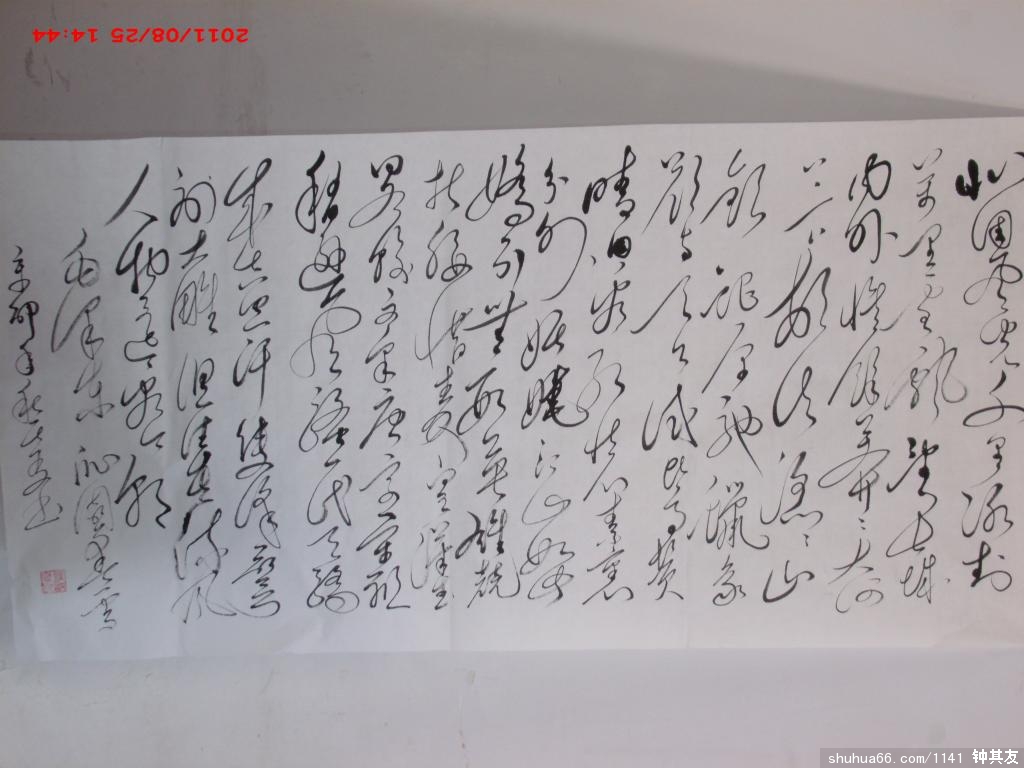 北国风光千里冰封
万里雪飘望长城
内外惟馀莽莽大河
上下顿失滔滔山
银蛇原驰蜡象
欲与天公试比高须
晴日看红装素裹
分外妖娆江山如
娇引无数英雄竞
折腰惜秦皇汉武
略输文采唐宗宋祖
稍逊风骚一代天骄
成吉思汗弯弓
射大雕俱往矣数风
人物还看今朝
毛泽东沁园春雪
辛卯年秋其友书
2011/08/25 14:44
shuhua66.com/1141 钟其友